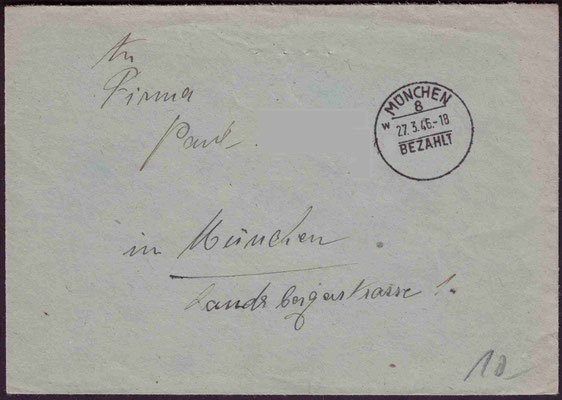 An
Firma
Paul
in München
Landsbergerstrasse 1.
MÜNCHEN
8
w
27.3.46.-18
BEZAHLT